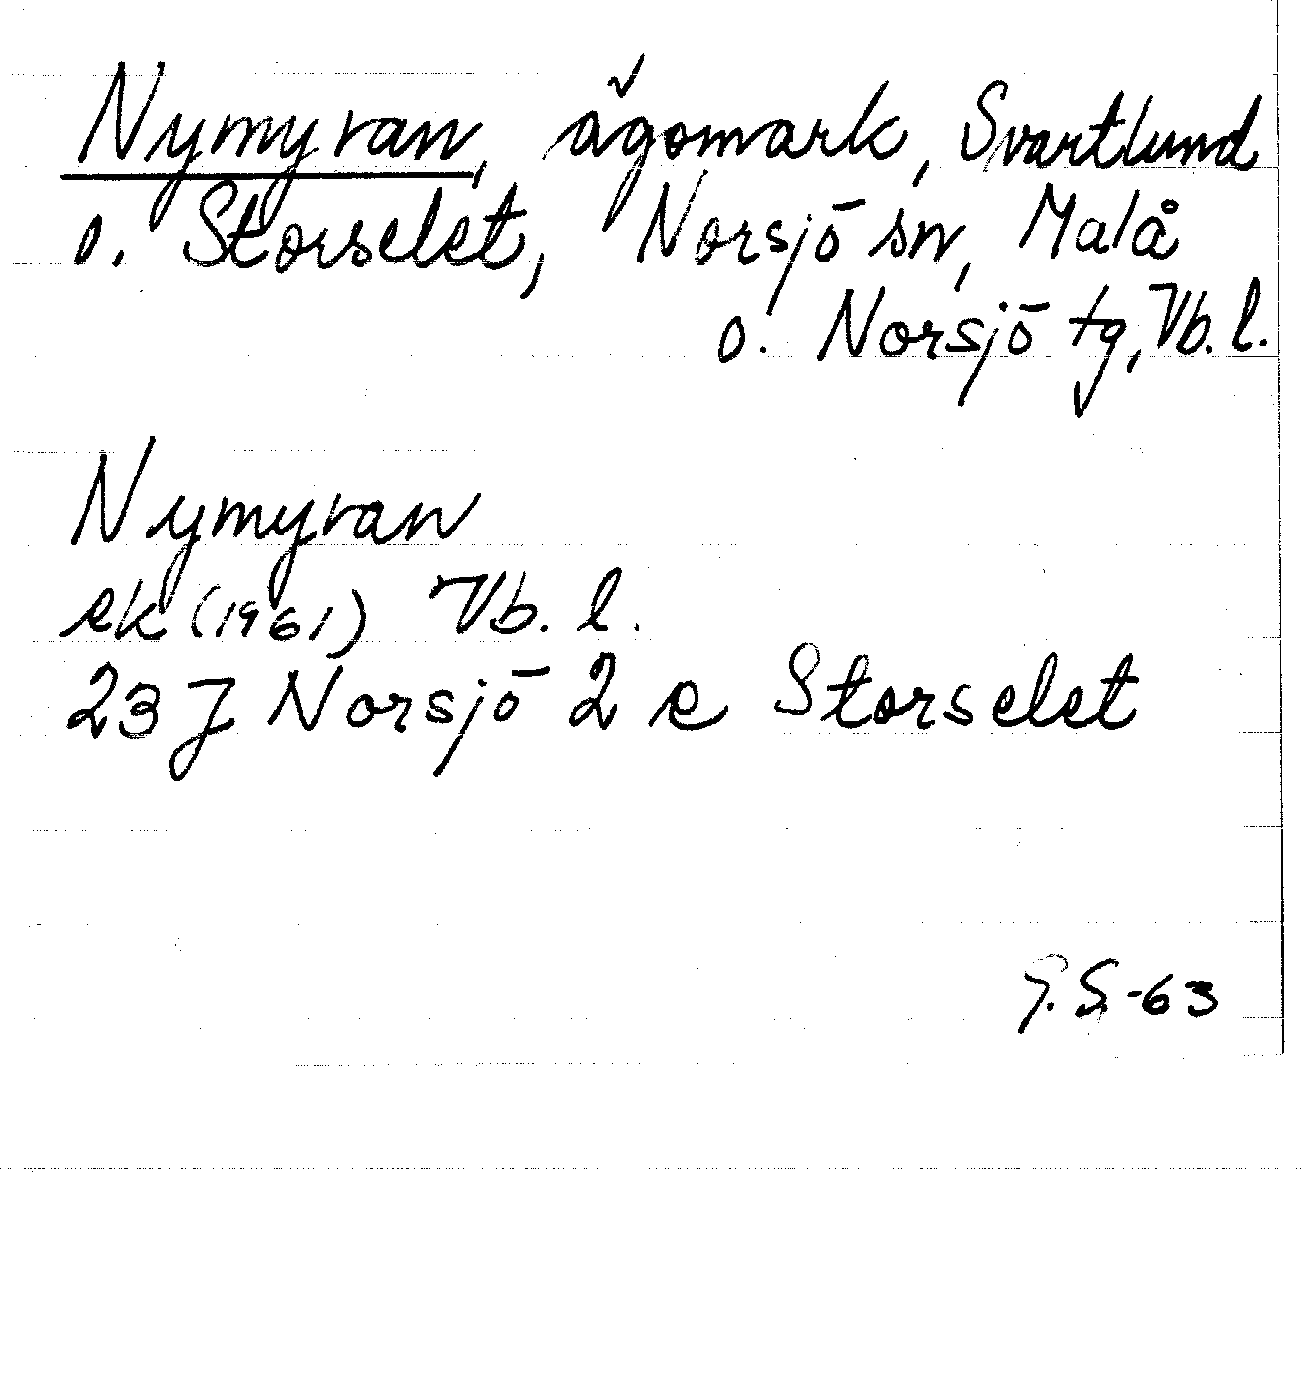 Nymyran, ägomark, Svartlund
o. Storselet, Norsjö sn, Malå
o. Norsjö tg, Vb. l.
Nymyran
ek (1961) Vb. l.
23 J Norsjö 2 e Storselet
G. S. -63